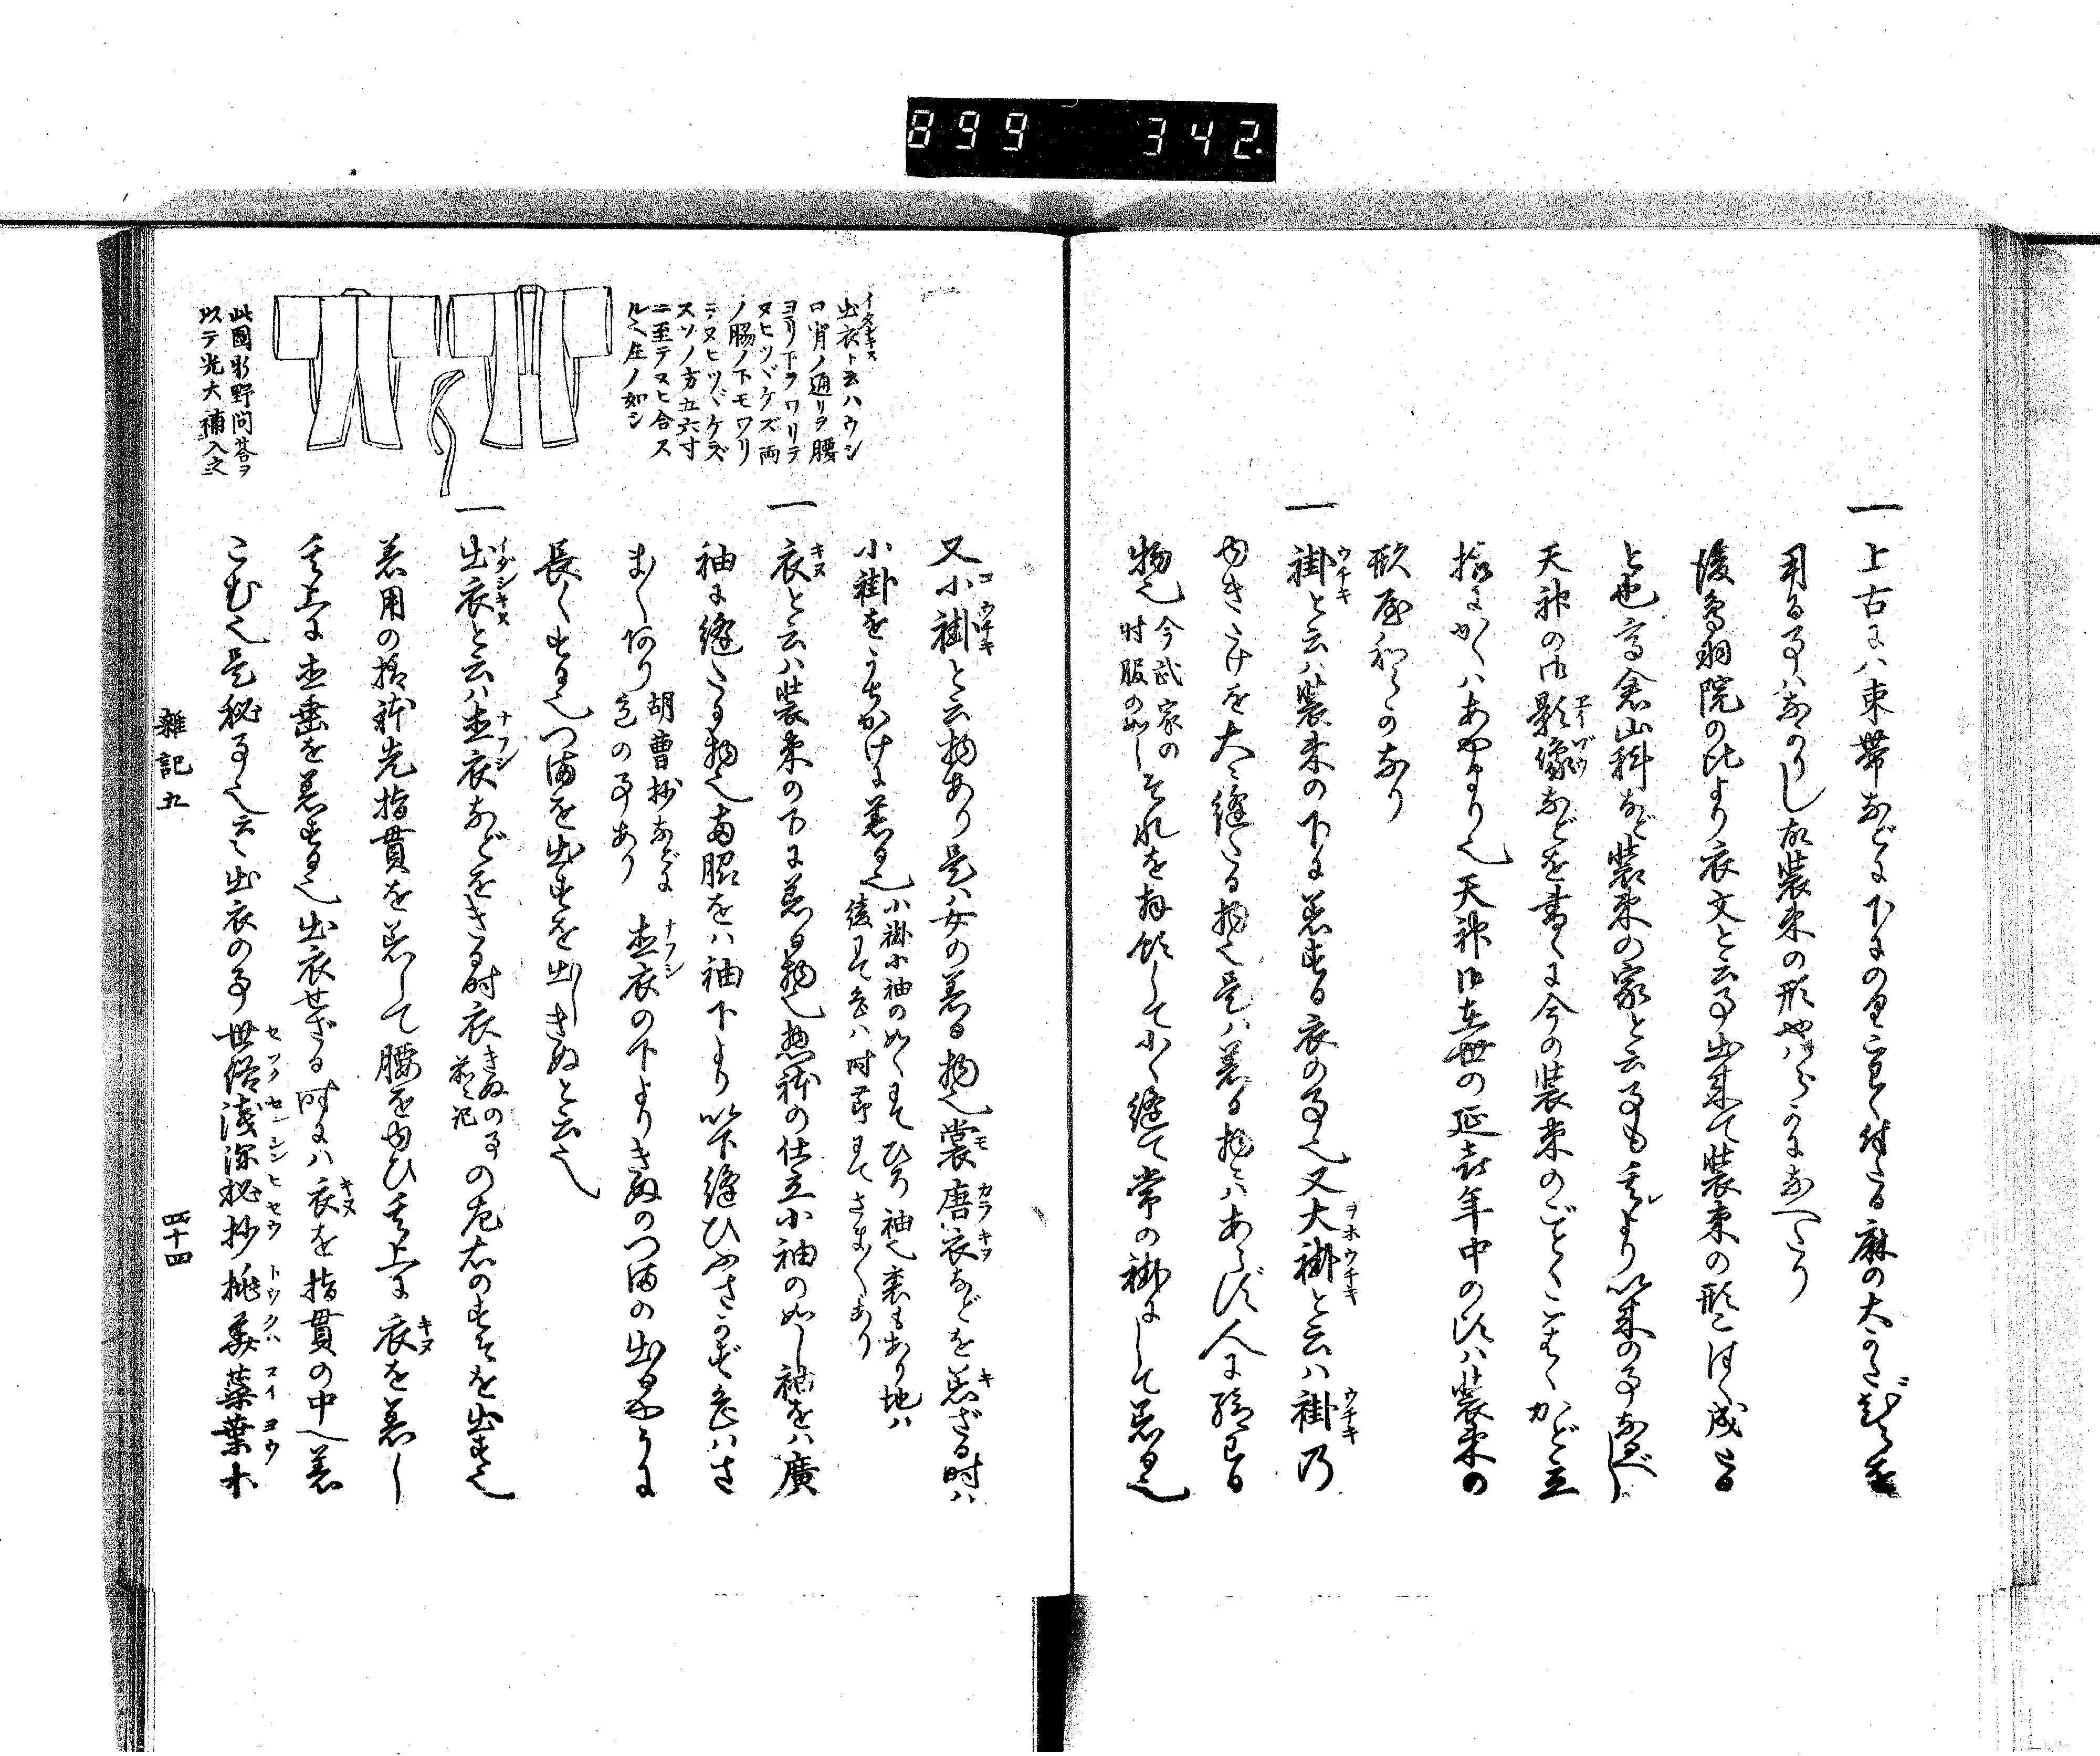 899 342
一上古ハ束帯などに下にのりこはく付たる麻の大かたびらを
用る事ハなかりし故装束の形やハらかになへたり
後鳥羽院の比より衣文と云事出来て装束の形こはく成たる
と也高倉山科など装束の家と云事も其より以来の事なるべし
天神の御影像などを書くに今の装束のごとくこはくかど立
様にかくハあやまり也天神御在世の延喜年中の比ハ装束の
形なり
一袿と云ハ装束の下に着する衣の事也又大袿と云ハ袿の
ゆきたけを大く縫たる物也是ハ着る物にハあらず人に給はる
物也今武家の時服の如しそれを拝領して小く縫て常の袿にして着る也
又小袿と云物あり是ハ女の着る物也裳唐衣などを着ざる時ハ
小袿をうちかけに着る也小袿小袖の如くにてひろ袖也裏もあり地ハ綾にて色ハ時節にてさまざまあり
一衣と云ハ装束の下に着る物也惣躰の仕立小袖の如し袖をハ廣
袖に縫たる物也両脇をハ袖下より以下縫ひふさがず色ハさ
まざまあり胡曹抄などに色の事あり直衣の下よりきぬのつまの出るやうに
長くする也つまを出すを出しきぬと云也
一出衣と云ハ直衣などをきる時衣きぬの事前に記の左右のすそを出す也
着用の様躰先指貫を着して腰をゆひ其上に衣を着し
其上に直垂を着する也出衣せざる時にハ衣を指貫の中へ着
こむ也是秘事也云々出衣の事世俗浅深秘抄桃華蘂葉木
出衣ト云ハウシ
ロ背ノ通リヲ腰
ヨリ下ヲワリテ
ヌヒツヾケズ両
ノ脇ノ下モワリ
テヌヒツヾケズ
スソノ方五六寸
ニ至テヌヒ合ス
ル也左ノ如シ
此圖新野問答ヲ
以テ光大補入之
雜記五
四十四